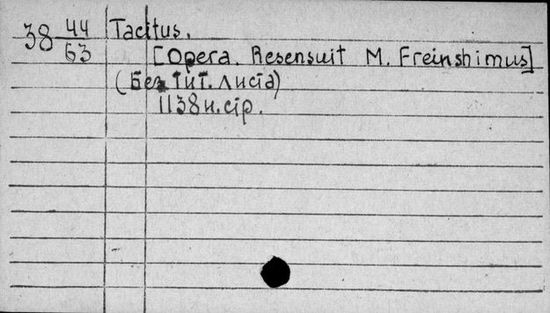 38 44/63 Tacitus.
[Opera. Resensuit M. Freinshimus]
(Без тит. листа)
1138 н. стр.